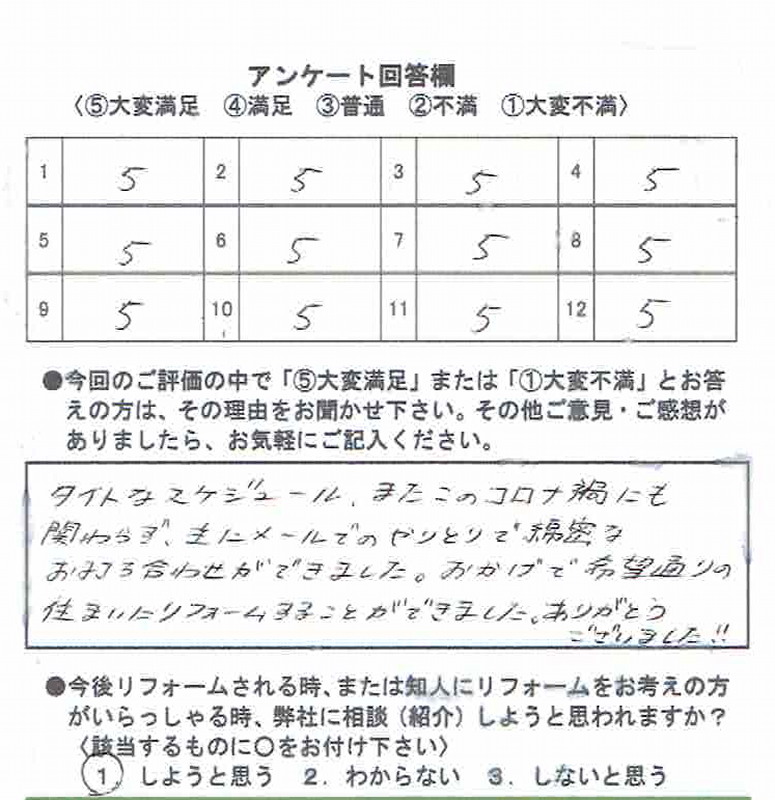 アンケート回答欄
〈⑤大変満足　④満足　③普通　②不満　①大変不満〉
1 5 2 5 3 5 4 5
5 5 6 5 7 5 8 5
9 5 10 5 11 5 12 5
●今回のご評価の中で「⑤大変満足」または「①大変不満」とお答
えの方は、その理由をお聞かせ下さい。その他ご意見・ご感想が
ありましたら、お気軽にご記入ください。
タイトなスケジュール、またこのコロナ禍にも
関わらず、主にメールでのやりとりで綿密な
お打ち合わせができました。おかげで希望通りの
住まいにリフォームすることができました。ありがとう
ございました!!
●今後リフォームされる時、または知人にリフォームをお考えの方
がいらっしゃる時、弊社に相談（紹介）しようと思われますか？
〈該当するものに○をお付け下さい〉
1 しようと思う　2．わからない　3．しないと思う